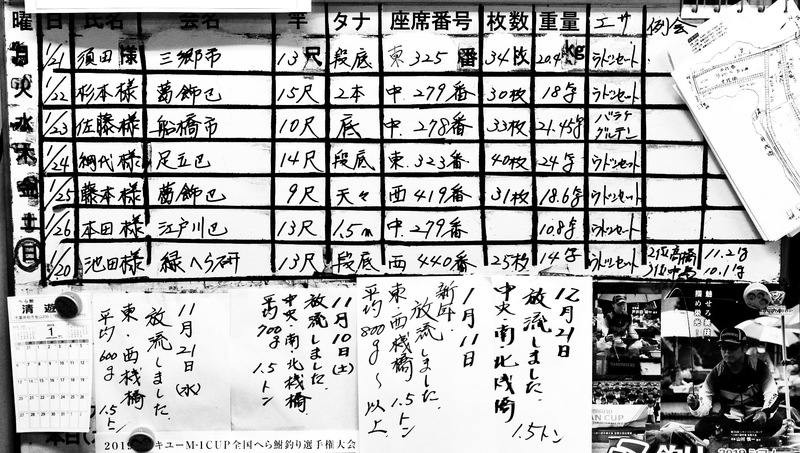 曜 日 氏名 会名 竿 タナ 座席番号 枚数 重量 エサ 例会
月 1/21 須田様 三郷市 13尺 段底 東 325番 34枚 20.4kg ウドンセット
火 1/22 杉本様 葛飾区 15尺 2本 中. 279番 30枚 18〃 ウドンセット
水 1/23 佐藤様 船橋市 10尺 底 中. 278番 33枚 21.45〃 バラケ グルテン
木 1/24 網代様 足立区 14尺 段底 東. 323番 40枚 24〃 ウドンセット
金 1/25 藤本様 葛飾区 9尺 天々 西 419番 31枚 18.6〃 ウドンセット
土 1/26 本田様 江戸川区 13尺 1.5m 中. 279番 10.8〃 ウドンセット
日 1/20 池田様 緑へら研 13尺 段底 西 440番 25枚 14〃 ウドンセット 2位 高橋 11.2〃
10.1〃
清遊
1
11月21日(水)
放流しました.
東.西桟橋
平均600g 1.5トン
11月10日(土)
放流しました.
中央.南.北桟橋
平均700g 1.5トン
新年.1月11日
放流しました.
東.西桟橋 1.5トン
平均800g〜以上
12月21日
放流しました.
中央.南.北桟橋
1.5トン
魅せろ最技
掴め栄光!
CUP
M-1CUP全国へら鮒釣り選手権大会